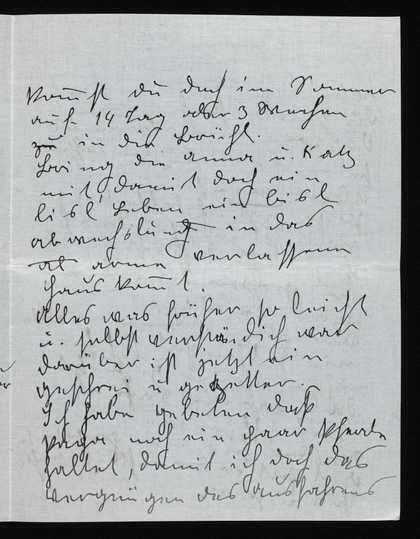 kom̅st du doch im Sommer
auf 14 Tag oder 3 Wochen
in die Brühl.
Bring die Anna u. Katz
mit damit doch ein
bisl Leben ein bisl
abwechslung in das
arme verlassene
Haus kom̅t.
Alles was früher so leicht
u. selbstverständich war
darüber ist jetzt ein
geschrei u gezetter.
Ich habe gebeten daß
Papa noch ein paar Pferde
haltet, damit ich doch das
vergnügen des ausfahrens